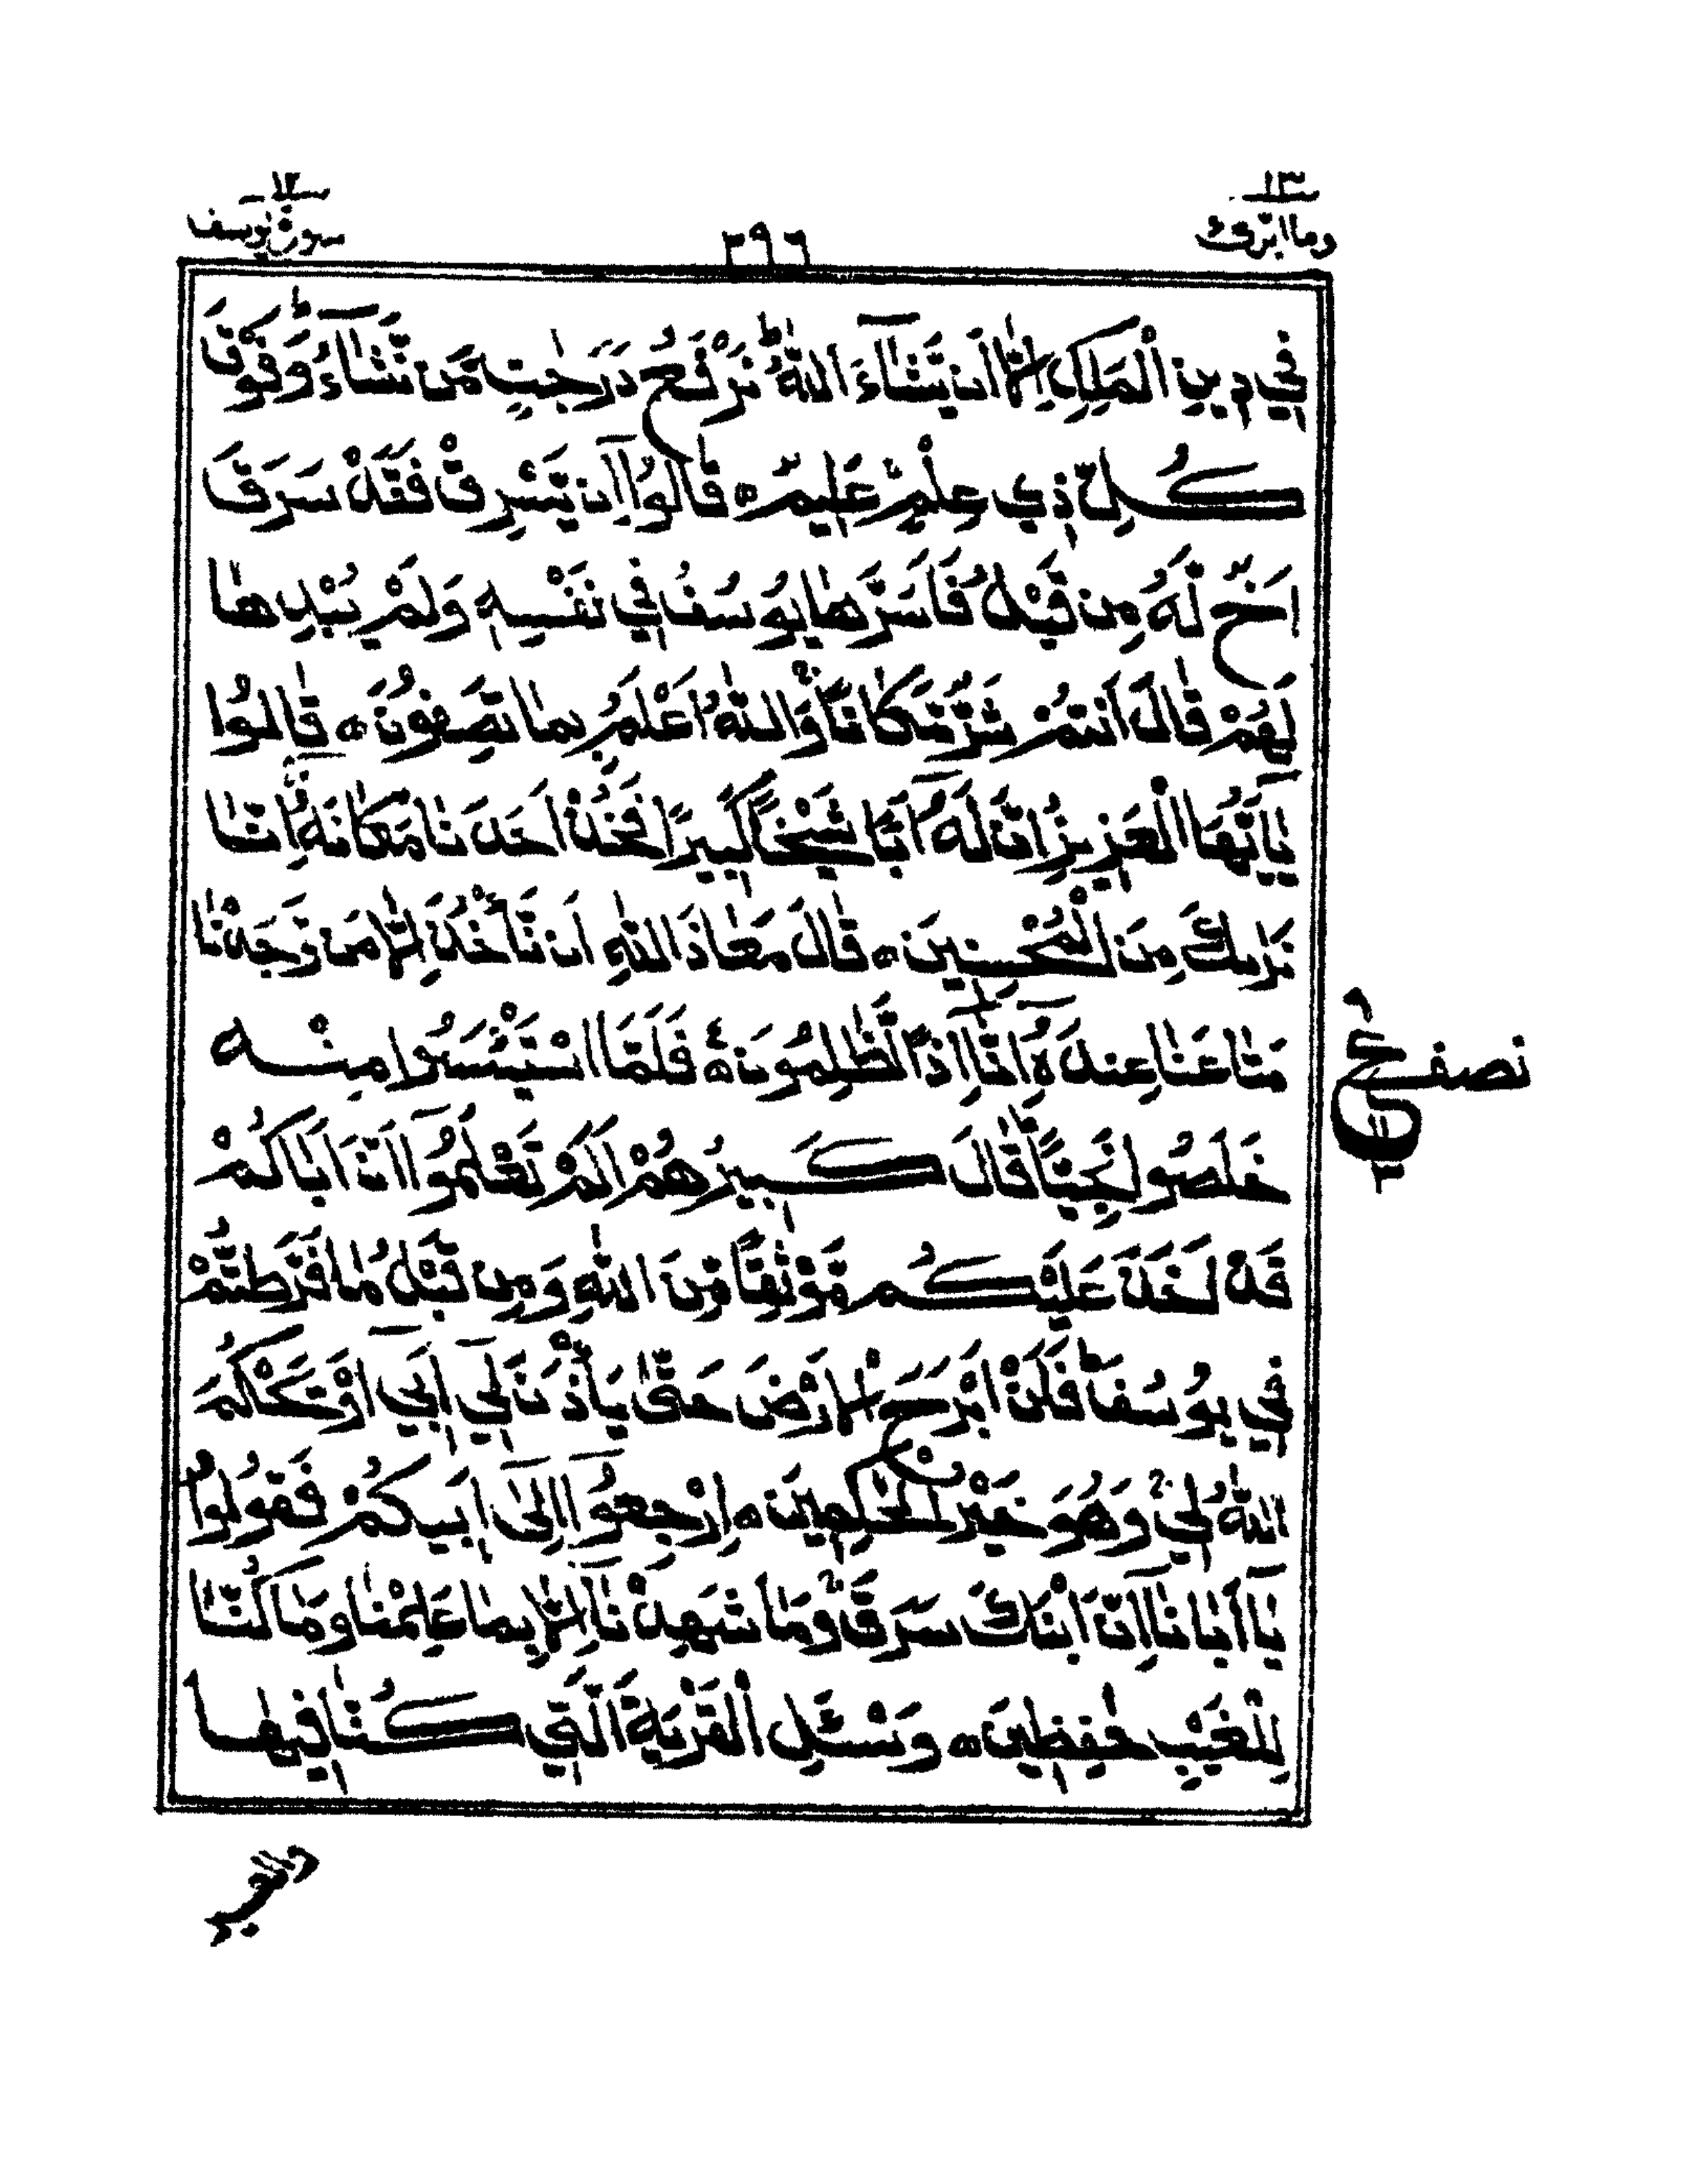 ١٣
وما ابرئ
٣٩٦
١٢
سورة يوسف
فِي دِينِ الْمَلِكِ اِلَّا اَن يَّشَآءَ اللّٰهُ ؕ نَرْفَعُ دَرَجٰتٍ مَّن نَّشَآءُ ؕ وَفَوْقَ
كُلِّ ذِي عِلْمٍ عَلِيمٌ ۝ قَالُوا اِن يَّسْرِقْ فَقَدْ سَرَقَ
اَخٌ لَّهُ مِن قَبْلُ فَاَسَرَّهَا يُوسُفُ فِي نَفْسِهٖ وَلَمْ يُبْدِهَا
لَهُمْ قَالَ اَنتُمْ شَرٌّ مَّكَانًا وَاللّٰهُ اَعْلَمُ بِمَا تَصِفُونَ ۝ قَالُوا
يٰاَيُّهَا الْعَزِيزُ اِنَّ لَهُ اَبًا شَيْخًا كَبِيرًا فَخُذْ اَحَدَنَا مَكَانَهُ اِنَّا
نَرٰىكَ مِنَ الْمُحْسِنِينَ ۝ قَالَ مَعَاذَ اللّٰهِ اَن نَّأْخُذَ اِلَّا مَن وَجَدْنَا
مَتَاعَنَا عِندَهُ اِنَّا اِذًا لَّظٰلِمُونَ ۝ فَلَمَّا اسْتَيْئَسُوا مِنْهُ
خَلَصُوا نَجِيًّا قَالَ كَبِيرُهُمْ اَلَمْ تَعْلَمُوآ اَنَّ اَبَاكُمْ
قَدْ اَخَذَ عَلَيْكُم مَّوْثِقًا مِّنَ اللّٰهِ وَمِن قَبْلُ مَا فَرَّطتُّمْ
فِي يُوسُفَ ؕ فَلَنْ اَبْرَحَ الْاَرْضَ حَتّٰى يَأْذَنَ لِيٓ اَبِيٓ اَوْ يَحْكُمَ
اللّٰهُ لِي وَهُوَ خَيْرُ الْحٰكِمِينَ ۝ اِرْجِعُوآ اِلٰىٓ اَبِيكُمْ فَقُولُوا
يٰٓاَبَانَآ اِنَّ ابْنَكَ سَرَقَ وَمَا شَهِدْنَآ اِلَّا بِمَا عَلِمْنَا وَمَا كُنَّا
لِلْغَيْبِ حٰفِظِينَ ۝ وَسْئَلِ الْقَرْيَةَ الَّتِي كُنَّا فِيهَا
نصف
ع
٣
والعير